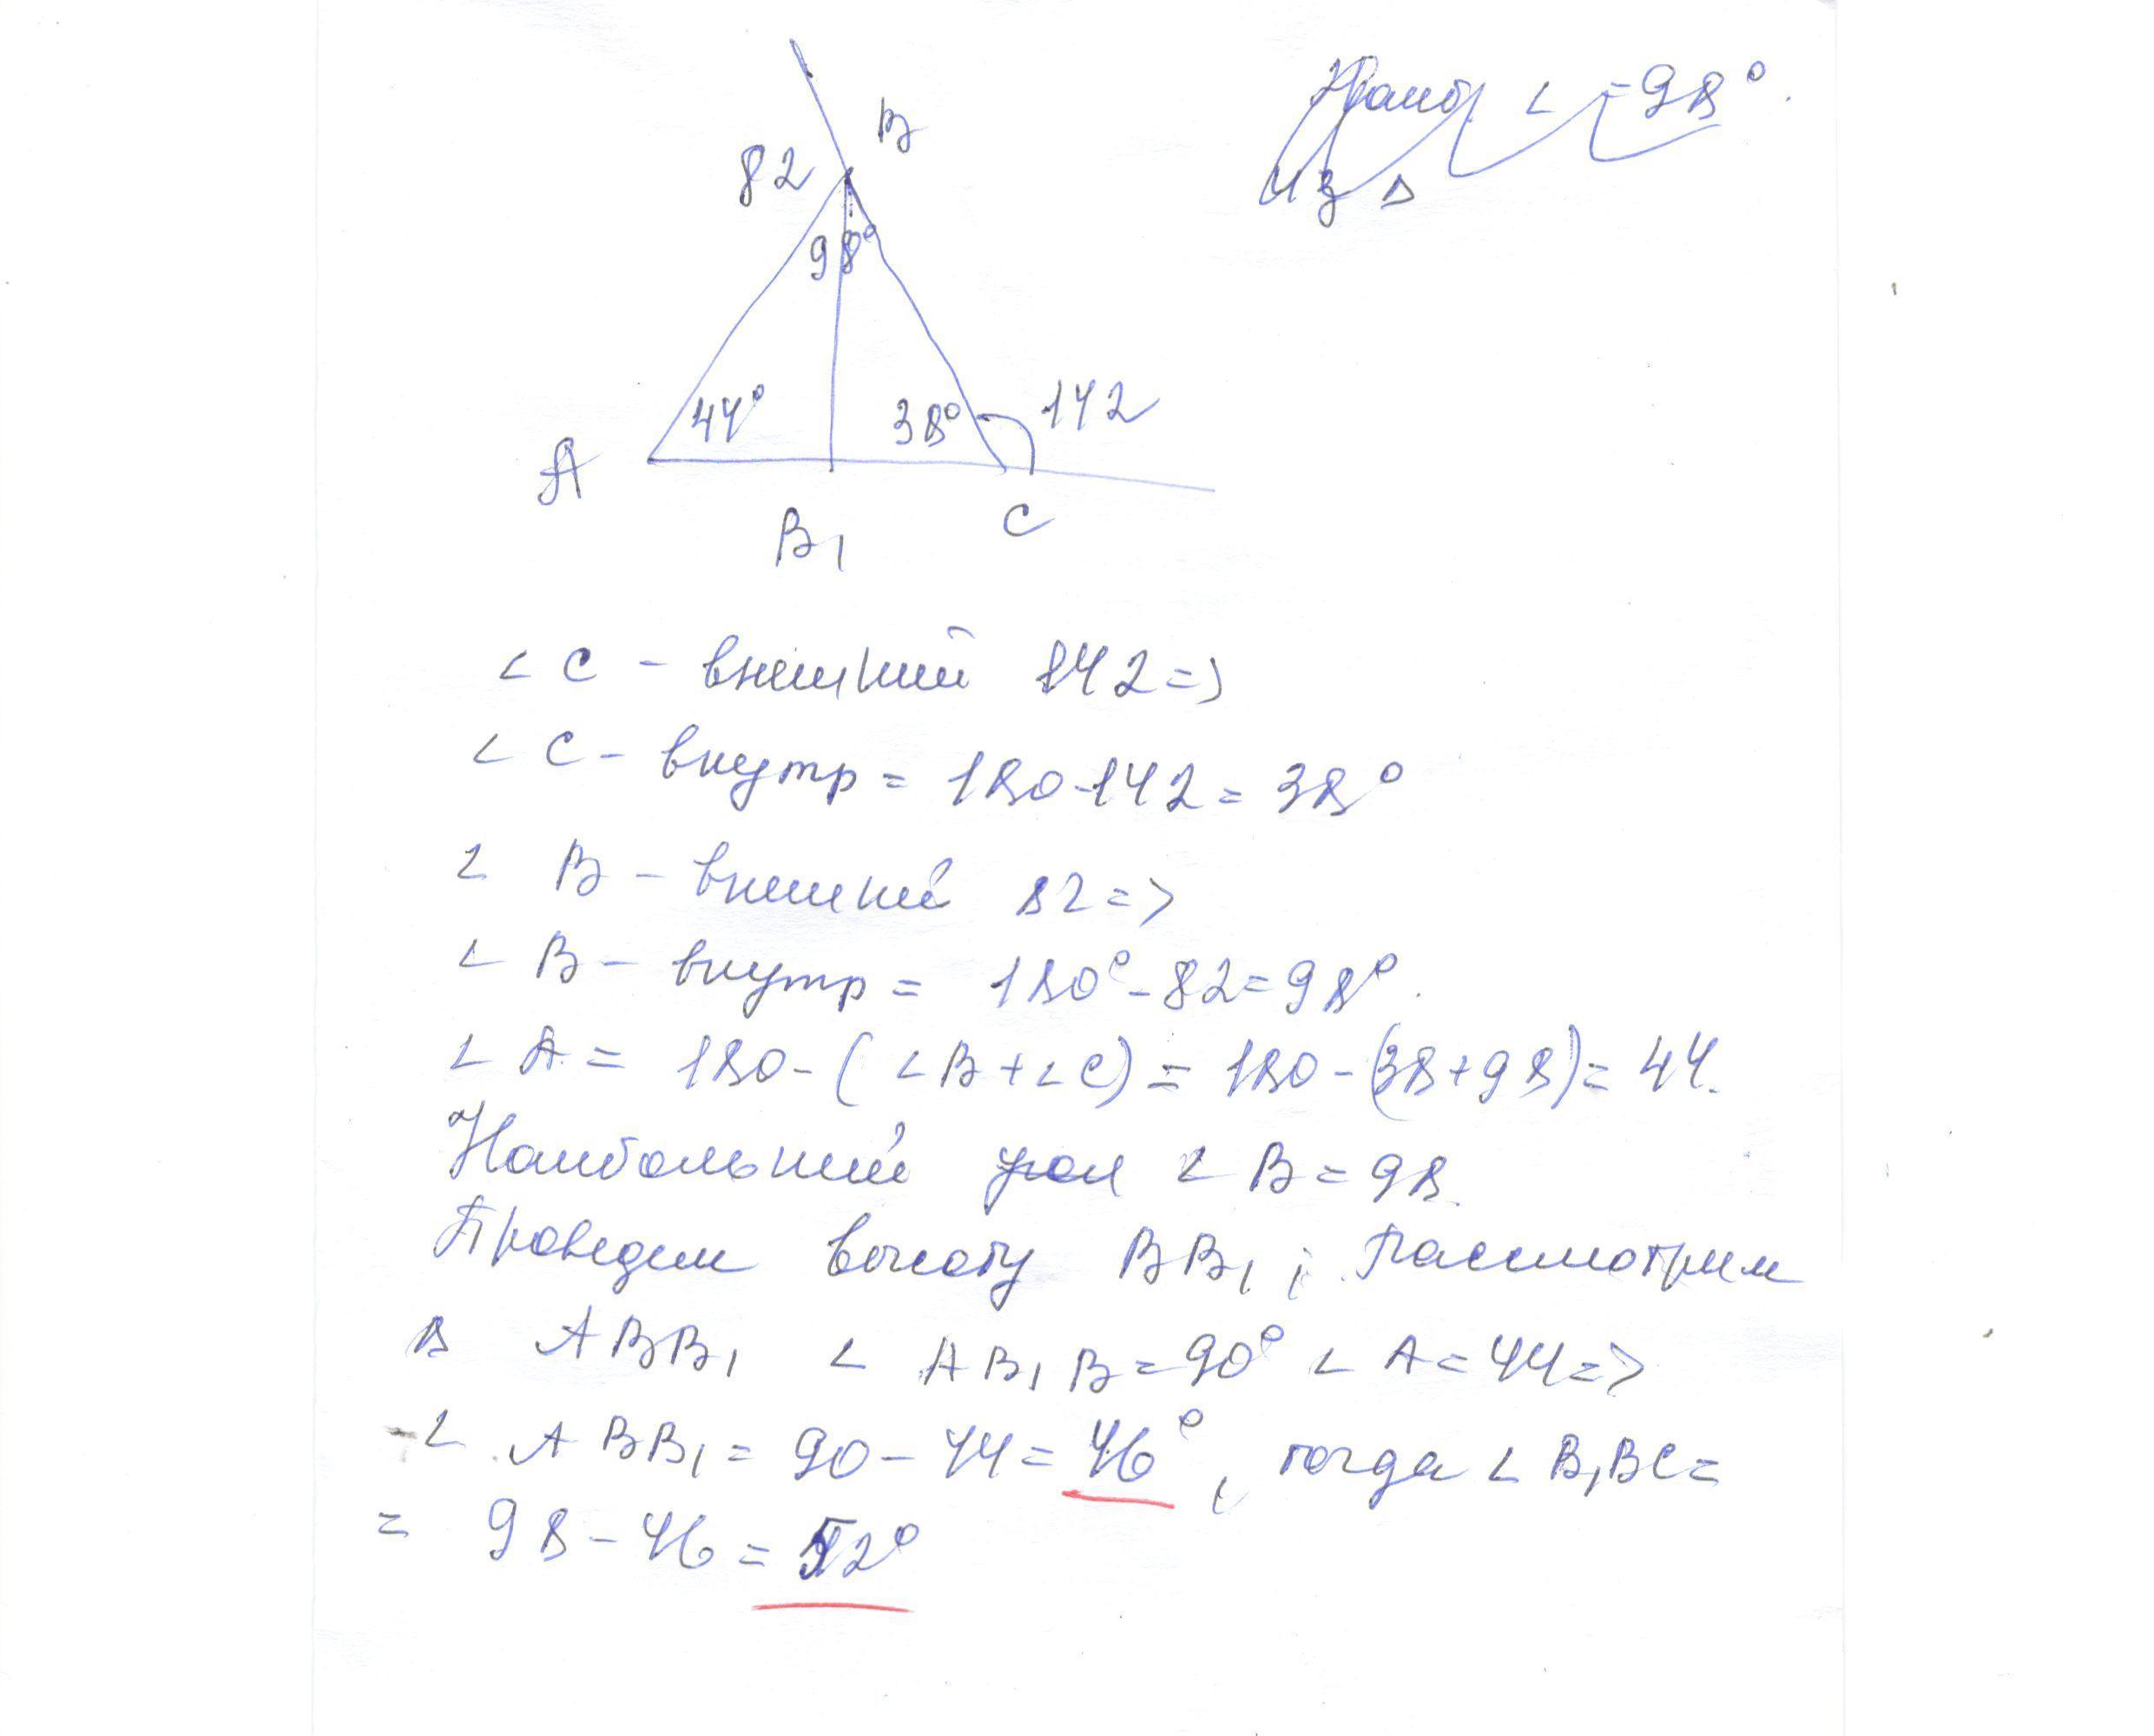 Наиб ∠ = 98°.
из Δ
B
82
98°
44°
38°
142
A
B₁
C
∠ C - внешний 142 =>
∠ C - внутр = 180-142 = 38°
∠ B - внешний 82 =>
∠ B - внутр = 180° - 82 = 98°.
∠ A = 180 - (∠B+∠C) = 180 - (38+98) = 44.
Наибольший угол ∠ B = 98.
Проведем высоту BB₁, рассмотрим
Δ ABB₁ ∠ AB₁B = 90° ∠ A = 44 =>
-∠ ABB₁ = 90 - 44 = 46°, тогда ∠ B₁BC =
= 98 - 46 = 52°